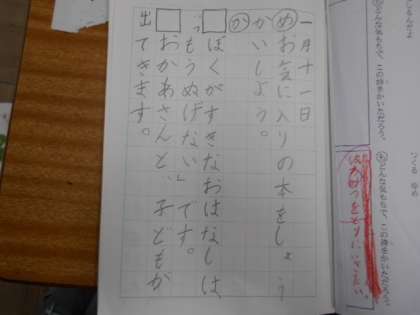 一月十一日
め お気に入りの本をしょう
かいしよう。
か
ぼくがすきなおはなしは
「もうぬげない」です。
おかあさんと、子どもが
出てきます。
どんな気もちで、この詩をかいただろう。
どんな気もちで、この詩をかいただろう。
つくる ゆめ